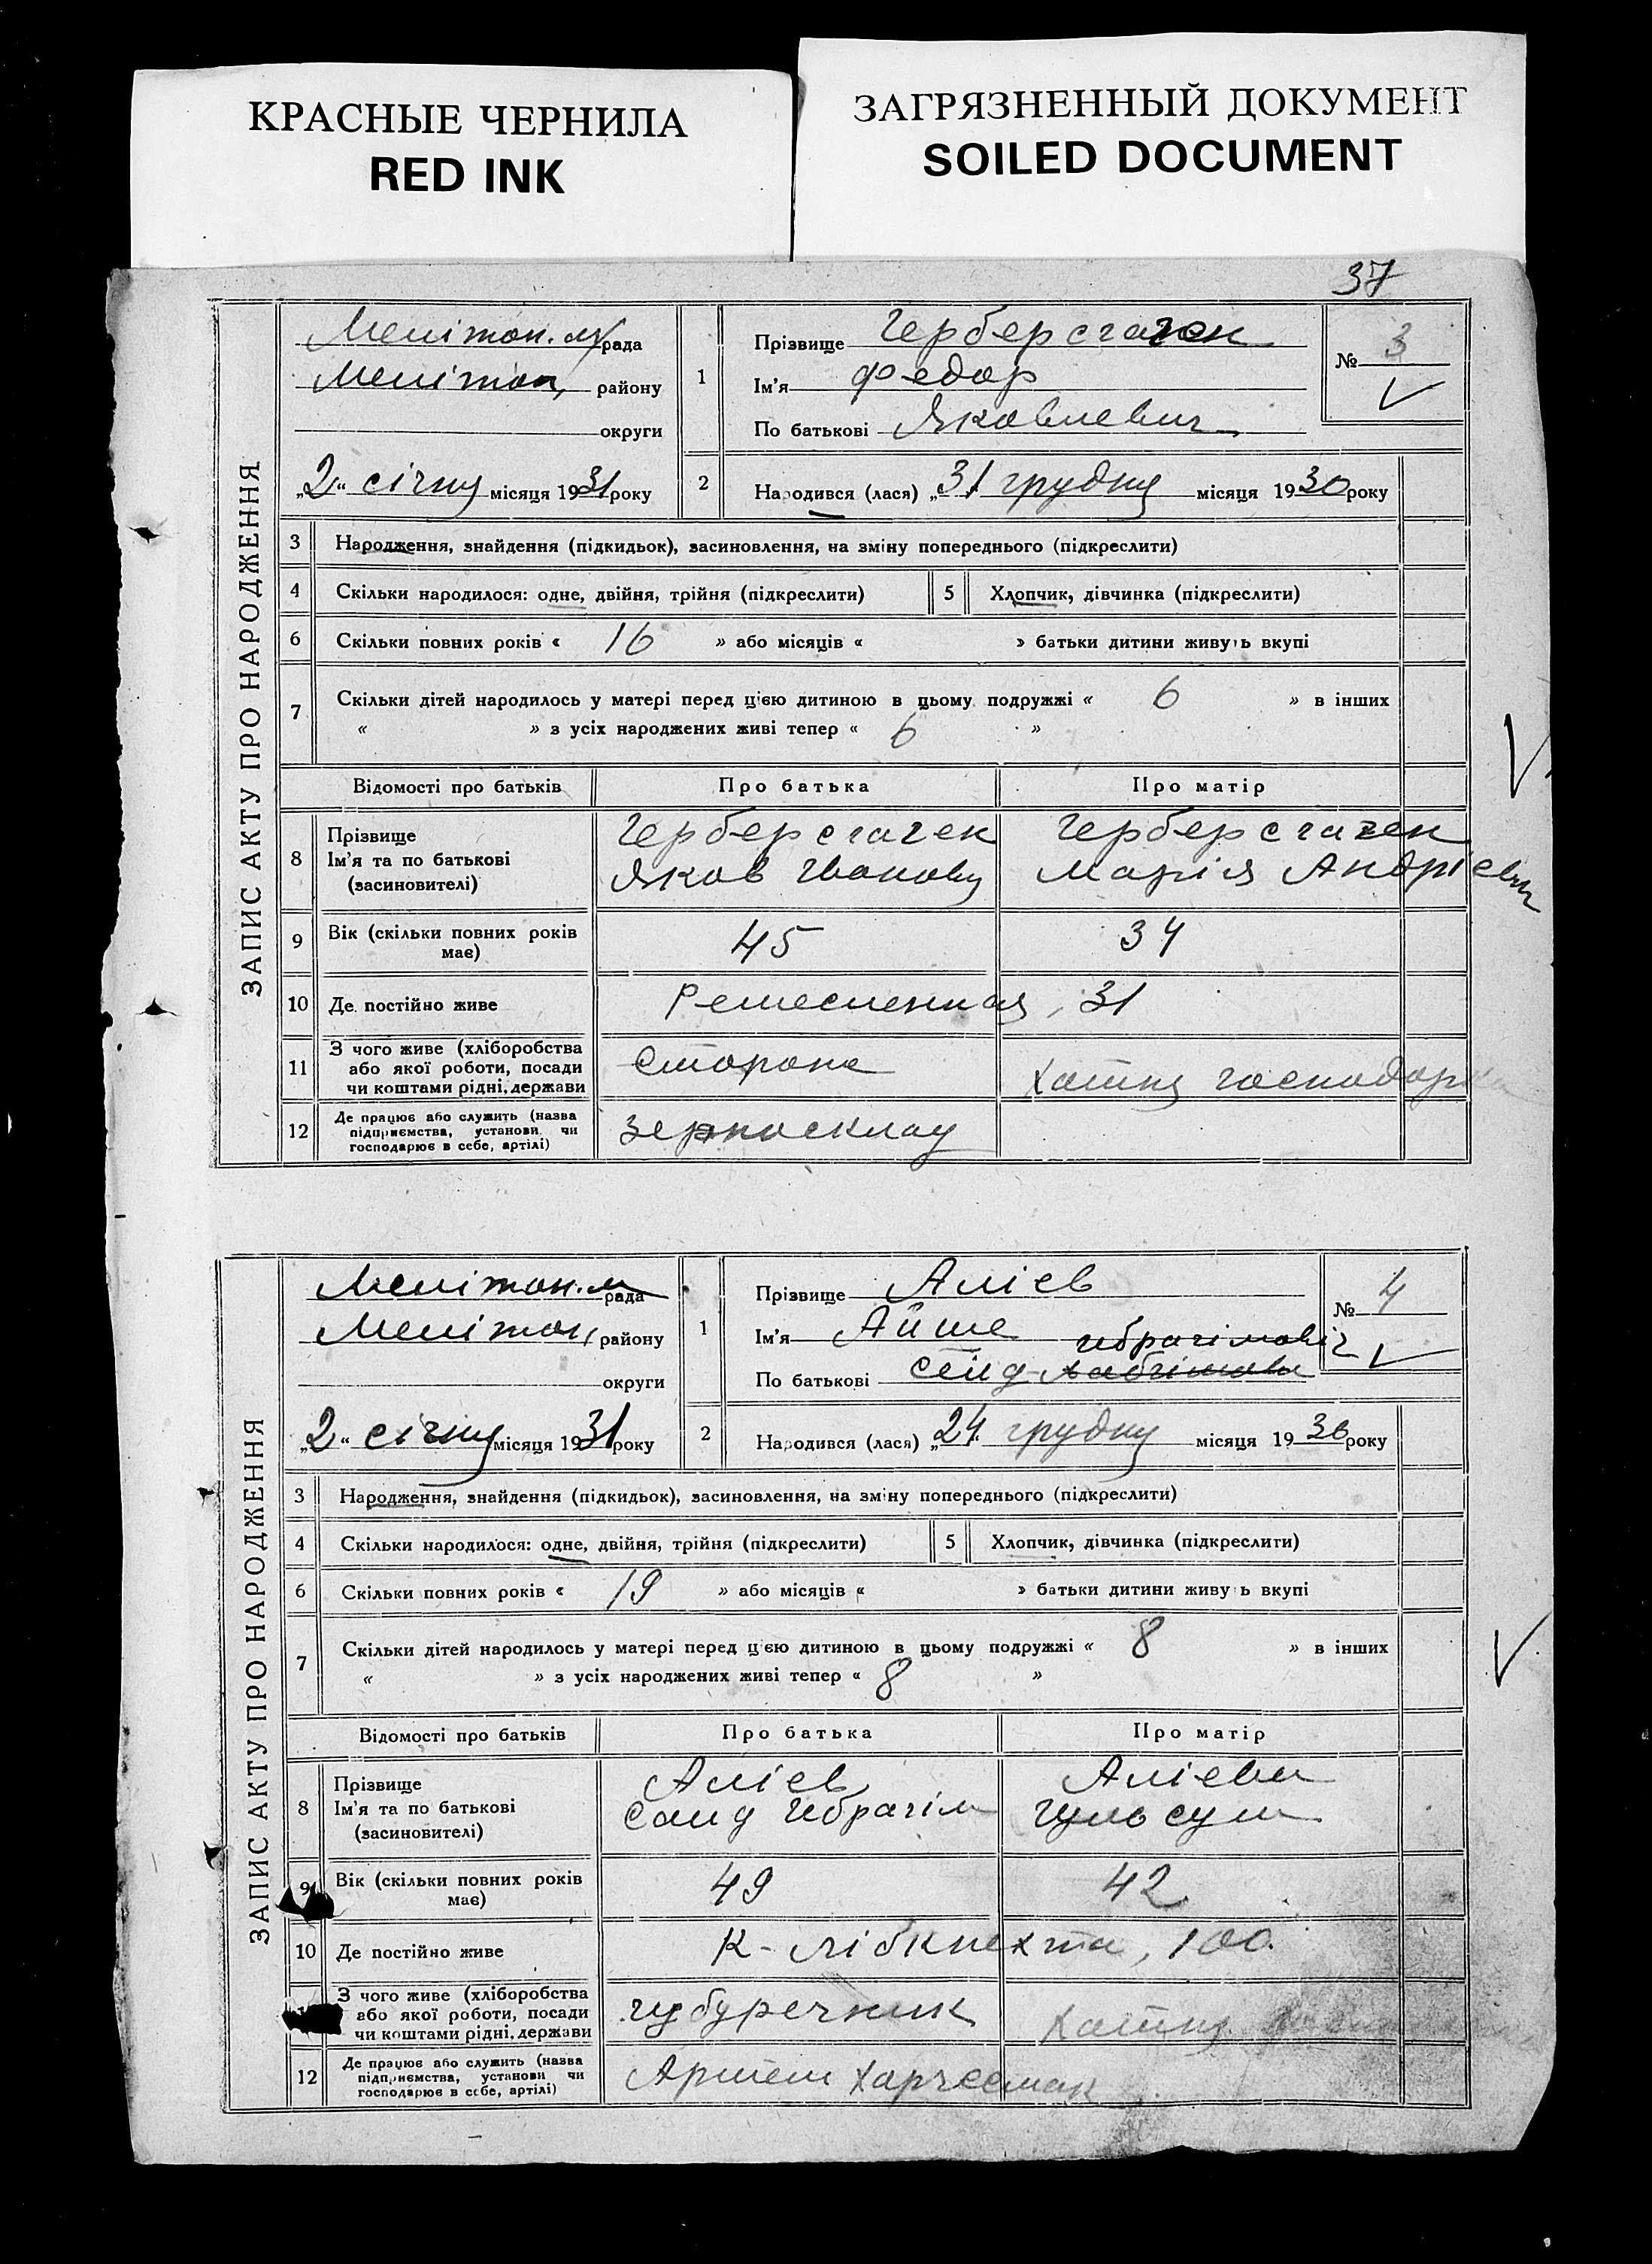 КРАСНЫЕ ЧЕРНИЛА
RED INK
ЗАГРЯЗНЕННЫЙ ДОКУМЕНТ
SOILED DOCUMENT
37
ЗАПИС АКТУ ПРО НАРОДЖЕННЯ
Меліton. м/рада
Меліtоп, району
округи
„2“ січня місяця 1931 року
1
Прізвище Герберсгаген
Ім'я Федор
По батькові Яковлевич
№ 3
2 Народився (лася) „31 грудня місяця 1930 року
3 Народження, знайдення (підкидьок), засиновлення, на зміну попереднього (підкреслити)
4 Скільки народилося: одне, двійня, трійня (підкреслити) 5 Хлопчик, дівчинка (підкреслити)
6 Скільки повних років « 16 » або місяців « » батьки дитини живуть вкупі
7 Скільки дітей народилось у матері перед цією дитиною в цьому подружжі « 6 » в інших
« » з усіх народжених живі тепер « 6 »
Відомості про батьків Про батька Про матір
8 Прізвище
Ім'я та по батькові
(засиновителі)
Герберсгаген
Яков Іванович
Герберсгаген
Марія Андрієвн
9 Вік (скільки повних років має) 45 34
10 Де постійно живе Ремесленная, 31
11 З чого живе (хліборобства
або якої роботи, посади
чи коштами рідні, держави
Сторож
Хатня господарка
12 Де працює або служить (назва
підприємства, установи чи
господарює в себе, артілі)
Зерносклад
ЗАПИС АКТУ ПРО НАРОДЖЕННЯ
Мелітоп. м рада
Мелітоп, району
округи
„2“ січня місяця 1931 року
1
Прізвище Алієв
Ім'я Айше
По батькові Сеид Ибрагімовіч
№ 4
2 Народився (лася) „24 грудня місяця 1930 року
3 Народження, знайдення (підкидьок), засиновлення, на зміну попереднього (підкреслити)
4 Скільки народилося: одне, двійня, трійня (підкреслити) 5 Хлопчик, дівчинка (підкреслити)
6 Скільки повних років « 19 » або місяців « » батьки дитини живуть вкупі
7 Скільки дітей народилось у матері перед цією дитиною в цьому подружжі « 8 » в інших
« » з усіх народжених живі тепер « 8 »
Відомості про батьків Про батька Про матір
8 Прізвище
Ім'я та по батькові
(засиновителі)
Алієв
Саид Ибрагім
Алієва
Гульсум
9 Вік (скільки повних років має) 49 42
10 Де постійно живе К-Лібкнехта, 100.
З чого живе (хліборобства
або якої роботи, посади
чи коштами рідні, держави
чубуречник
Хатня
12 Де працює або служить (назва
підприємства, установи чи
господарює в себе, артілі)
Артіль Харчесмак